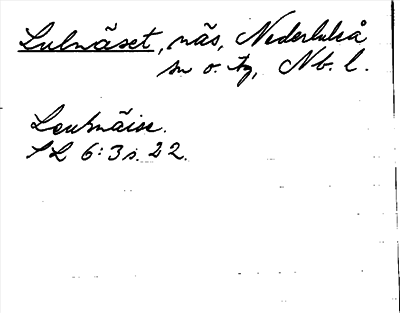 Lulnäset, näs, Nederluleå
sn o. tg, Nb. l.
Leulnäise.
SL 6:3 s. 22.